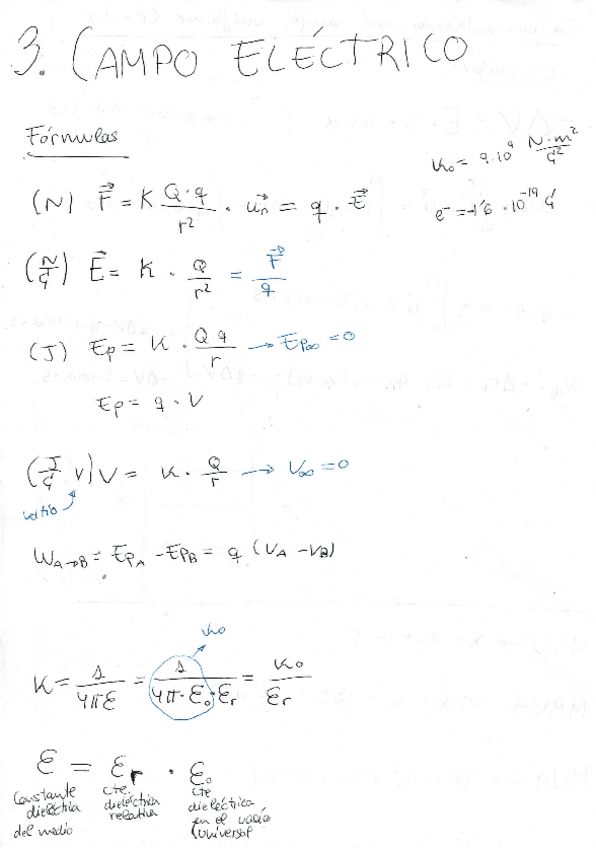 3. CAMPO ELÉCTRICO
Fórmulas
K₀ = 9·10⁹ N·m²/C²
e⁻ = -1'6 · 10⁻¹⁹ C
(N) F⃗ = K Q·q/r² · u⃗r = q · E⃗
(N/C) E⃗ = K · Q/r² = F⃗/q
(J) Ep = K · Q q/r → Ep∞ = 0
Ep = q · V
(J/C V) V = K · Q/r → V∞ = 0
voltio
W A→B = EpA - EpB = q (VA - VB)
K₀
K = 1/4πε = 1/4π·ε₀·εr = K₀/εr
ε = εr · ε₀
Constante dieléctrica del medio
cte. dieléctrica relativa
cte dieléctrica en el vacío (universal